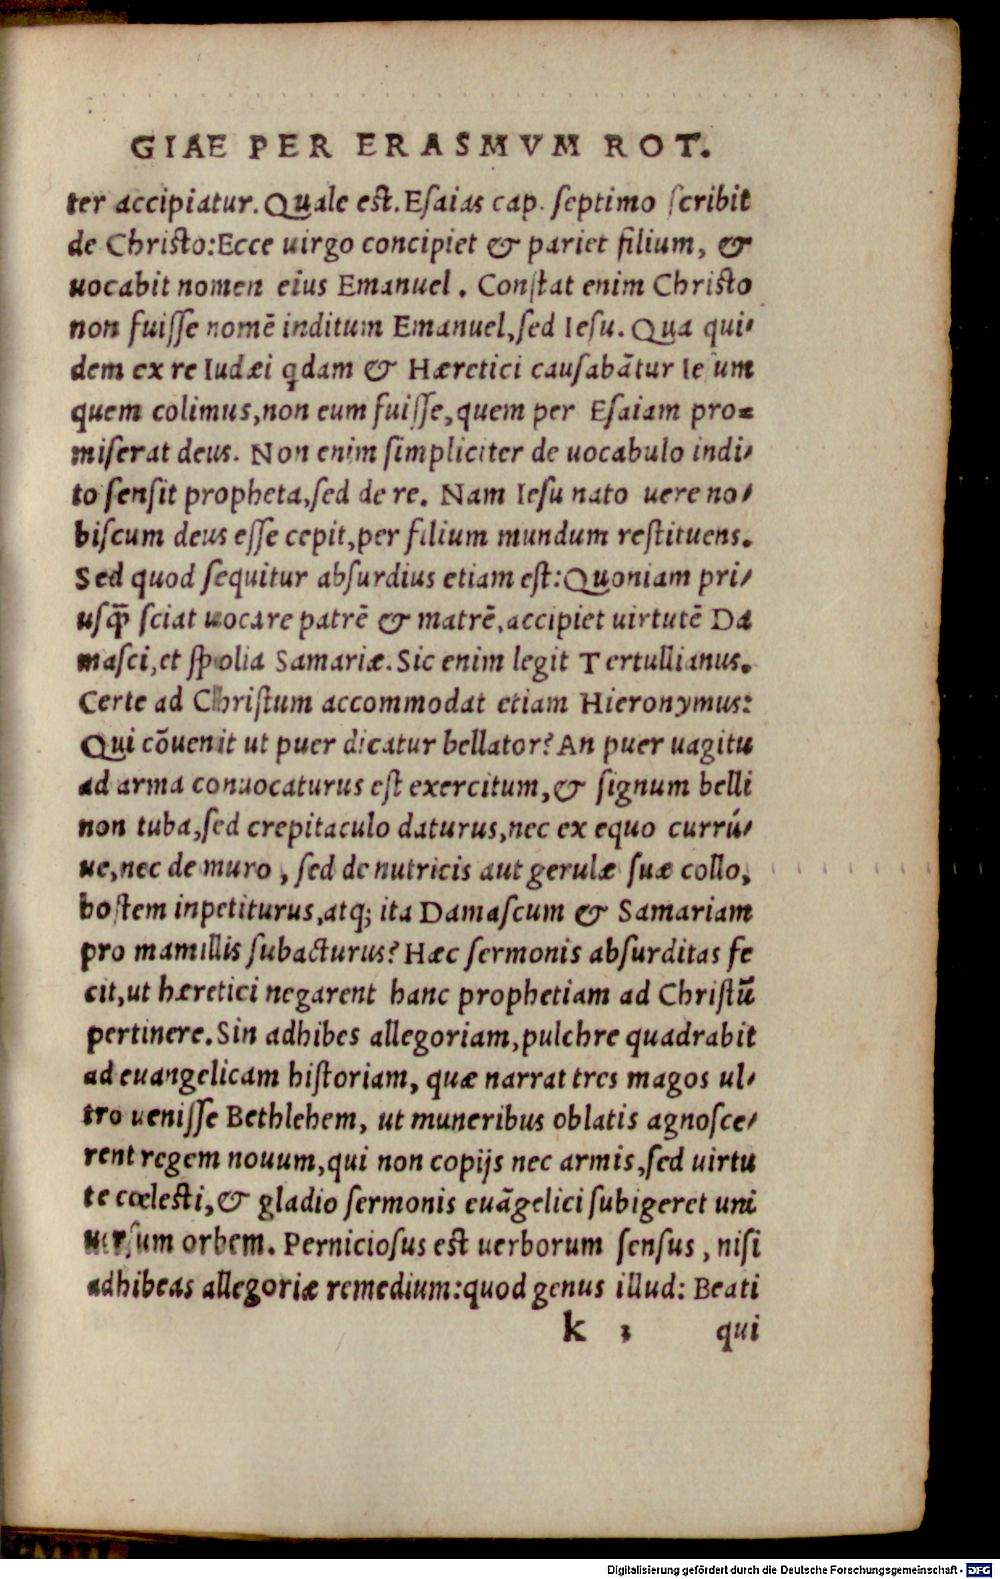 GIAE PER ERASMVM ROT.
ter accipiatur. Quale est. Esaias cap. septimo scribit
de Christo: Ecce uirgo concipiet & pariet filium, &
uocabit nomen eius Emanuel. Constat enim Christo
non fuisse nomē inditum Emanuel, sed Iesu. Qua qui-
dem ex re Iudæi qdam & Hæretici causabātur Iesum
quem colimus, non eum fuisse, quem per Esaiam pro-
miserat deus. Non enim simpliciter de uocabulo indi-
to sensit propheta, sed de re. Nam Iesu nato uere no-
biscum deus esse cepit, per filium mundum restituens.
Sed quod sequitur absurdius etiam est: Quoniam pri-
usq̃ sciat uocare patrē & matrē, accipiet uirtutē Da
masci, et spolia Samariæ. Sic enim legit Tertullianus.
Certe ad Christum accommodat etiam Hieronymus:
Qui cōuenit ut puer dicatur bellator? An puer uagitu
ad arma conuocaturus est exercitum, & signum belli
non tuba, sed crepitaculo daturus, nec ex equo currú-
ue, nec de muro, sed de nutricis aut gerulæ suæ collo,
hostem inpetiturus, atq; ita Damascum & Samariam
pro mamillis subacturus? Hæc sermonis absurditas fe
cit, ut hæretici negarent hanc prophetiam ad Christū
pertinere. Sin adhibes allegoriam, pulchre quadrabit
ad euangelicam historiam, quæ narrat tres magos ul-
tro uenisse Bethlehem, ut muneribus oblatis agnosce-
rent regem nouum, qui non copijs nec armis, sed uirtu
te cœlesti, & gladio sermonis euāgelici subigeret uni
uersum orbem. Perniciosus est uerborum sensus, nisi
adhibeas allegoriæ remedium: quod genus illud: Beati
k 3 qui
Digitalisierung gefördert durch die Deutsche Forschungsgemeinschaft - DFG